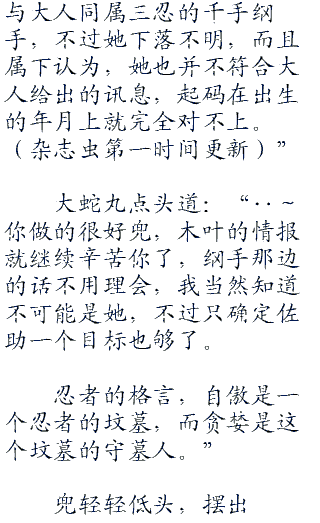 与大人同属三忍的千手纲
手，不过她下落不明，而且
属下认为，她也并不符合大
人给出的讯息，起码在出生
的年月上就完全对不上。
（杂志虫第一时间更新）”
大蛇丸点头道：“··~
你做的很好兜，木叶的情报
就继续辛苦你了，纲手那边
的话不用理会，我当然知道
不可能是她，不过只确定佐
助一个目标也够了。
忍者的格言，自傲是一
个忍者的坟墓，而贪婪是这
个坟墓的守墓人。”
兜轻轻低头，摆出